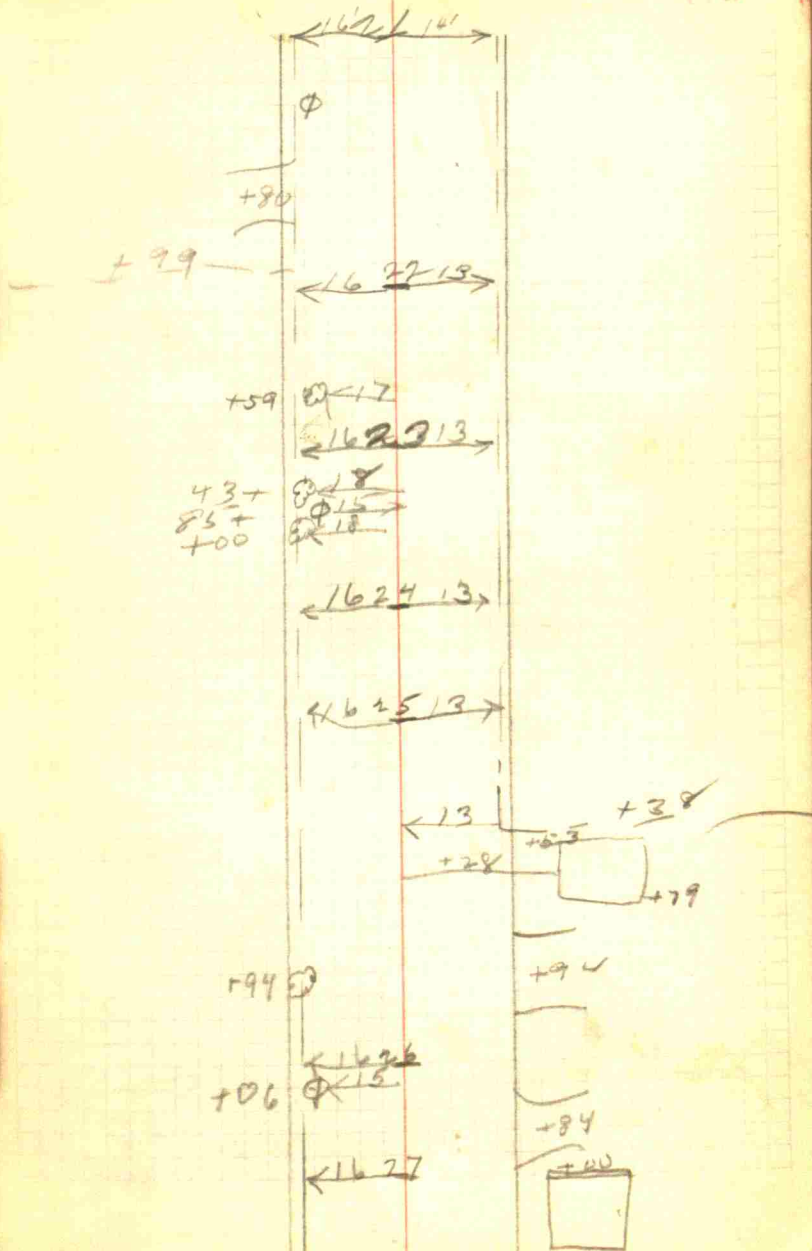 16 21 14
+80
+99
16 22 13
+59 17
16 23 13
43+ 18
85+ 15
+00 18
16 24 13
16 25 13
+38
13 +53
+28
+79
+94 +94
16 26
+06 15
+84
+00
16 27